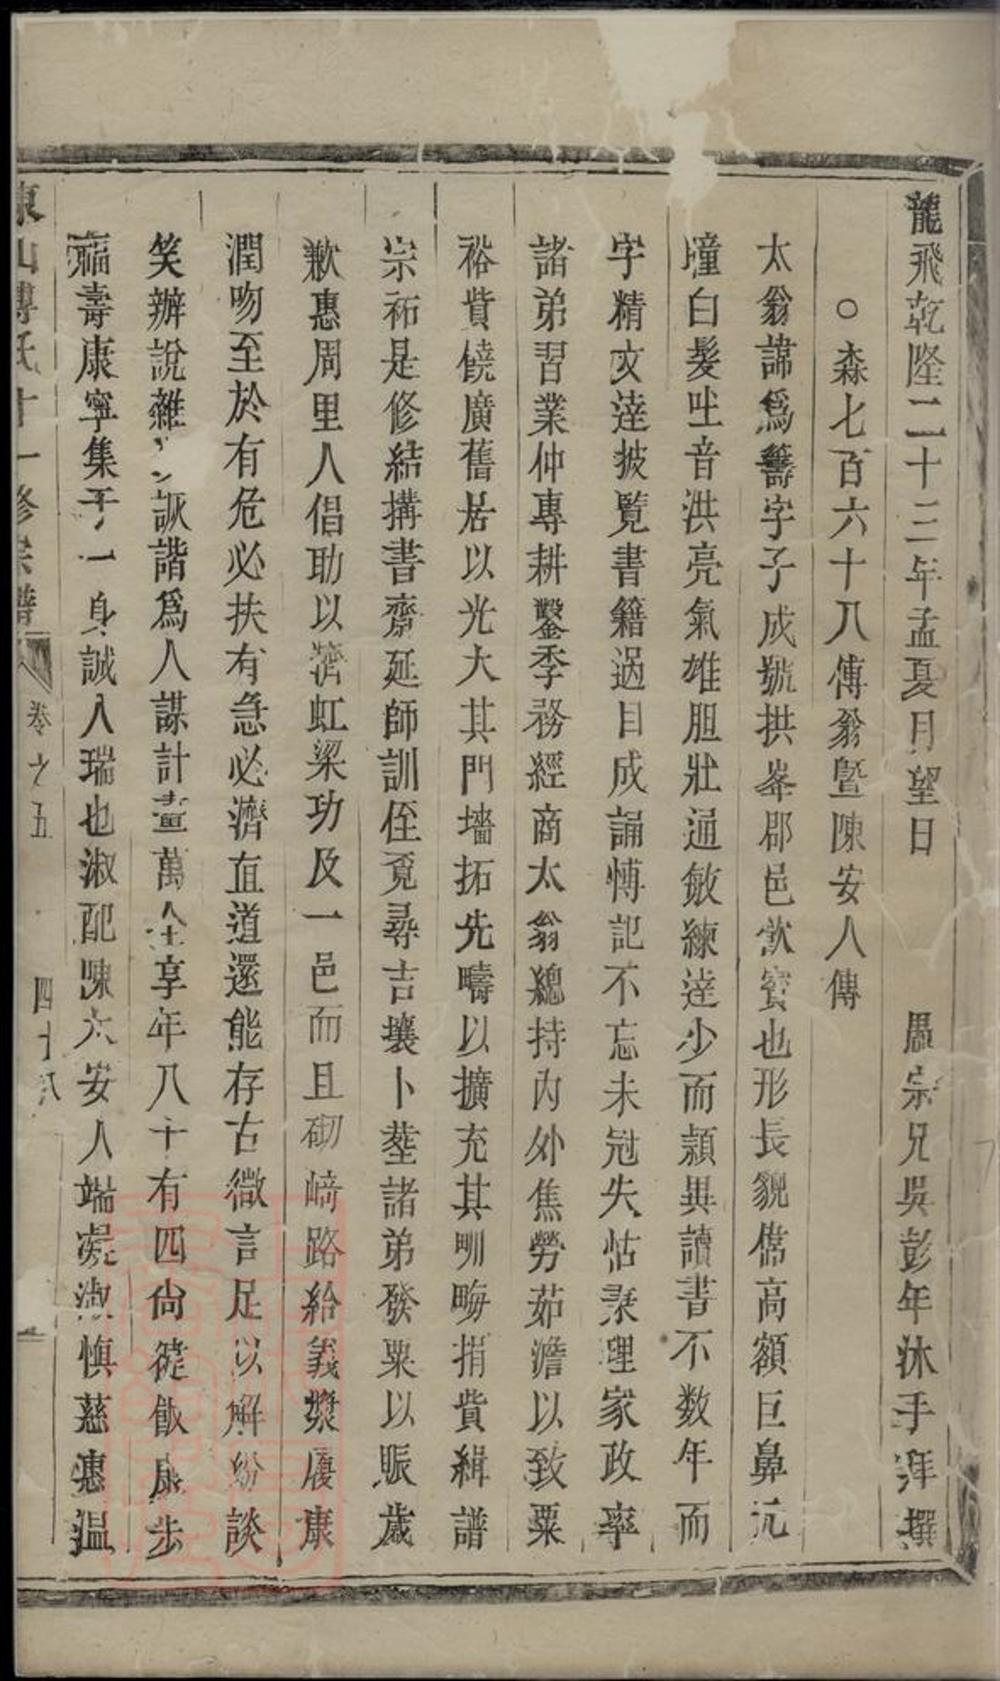 龍飛乾隆二十三年孟夏月望日　愚宗兄吳彭年沐手拜撰
○森七百六十八傳翁暨陳安人傳
太翁諱爲籌字子成號拱峯郡邑飲賓也形長貌儁高額巨鼻元
瞳白髮吐音洪亮氣雄胆壯通敏練達少而穎異讀書不数年而
字精文達披覧書籍過目成誦博記不忘未冠失怙秉理家政率
諸弟習業仲專耕鑿季務經商太翁總持內外焦勞茹澹以致粟
裕貲饒廣舊居以光大其門墻拓先疇以擴充其甽畮捐貲緝譜
宗祏是修結搆書齋延師訓侄覓尋吉壤卜塟諸弟發粟以賑歲
歉惠周里人倡助以濟虹梁功及一邑而且砌崎路給義漿履康
潤吻至於有危必扶有急必濟直道還能存古微言足以解紛談
笑辦說雜以詼諧爲人謀計畫萬全享年八十有四尙徤飯康步
福壽康寧集于一身誠人瑞也淑配陳太安人端嚴淑慎慈惠温
東山傅氏十一修宗譜　卷之五　四十八